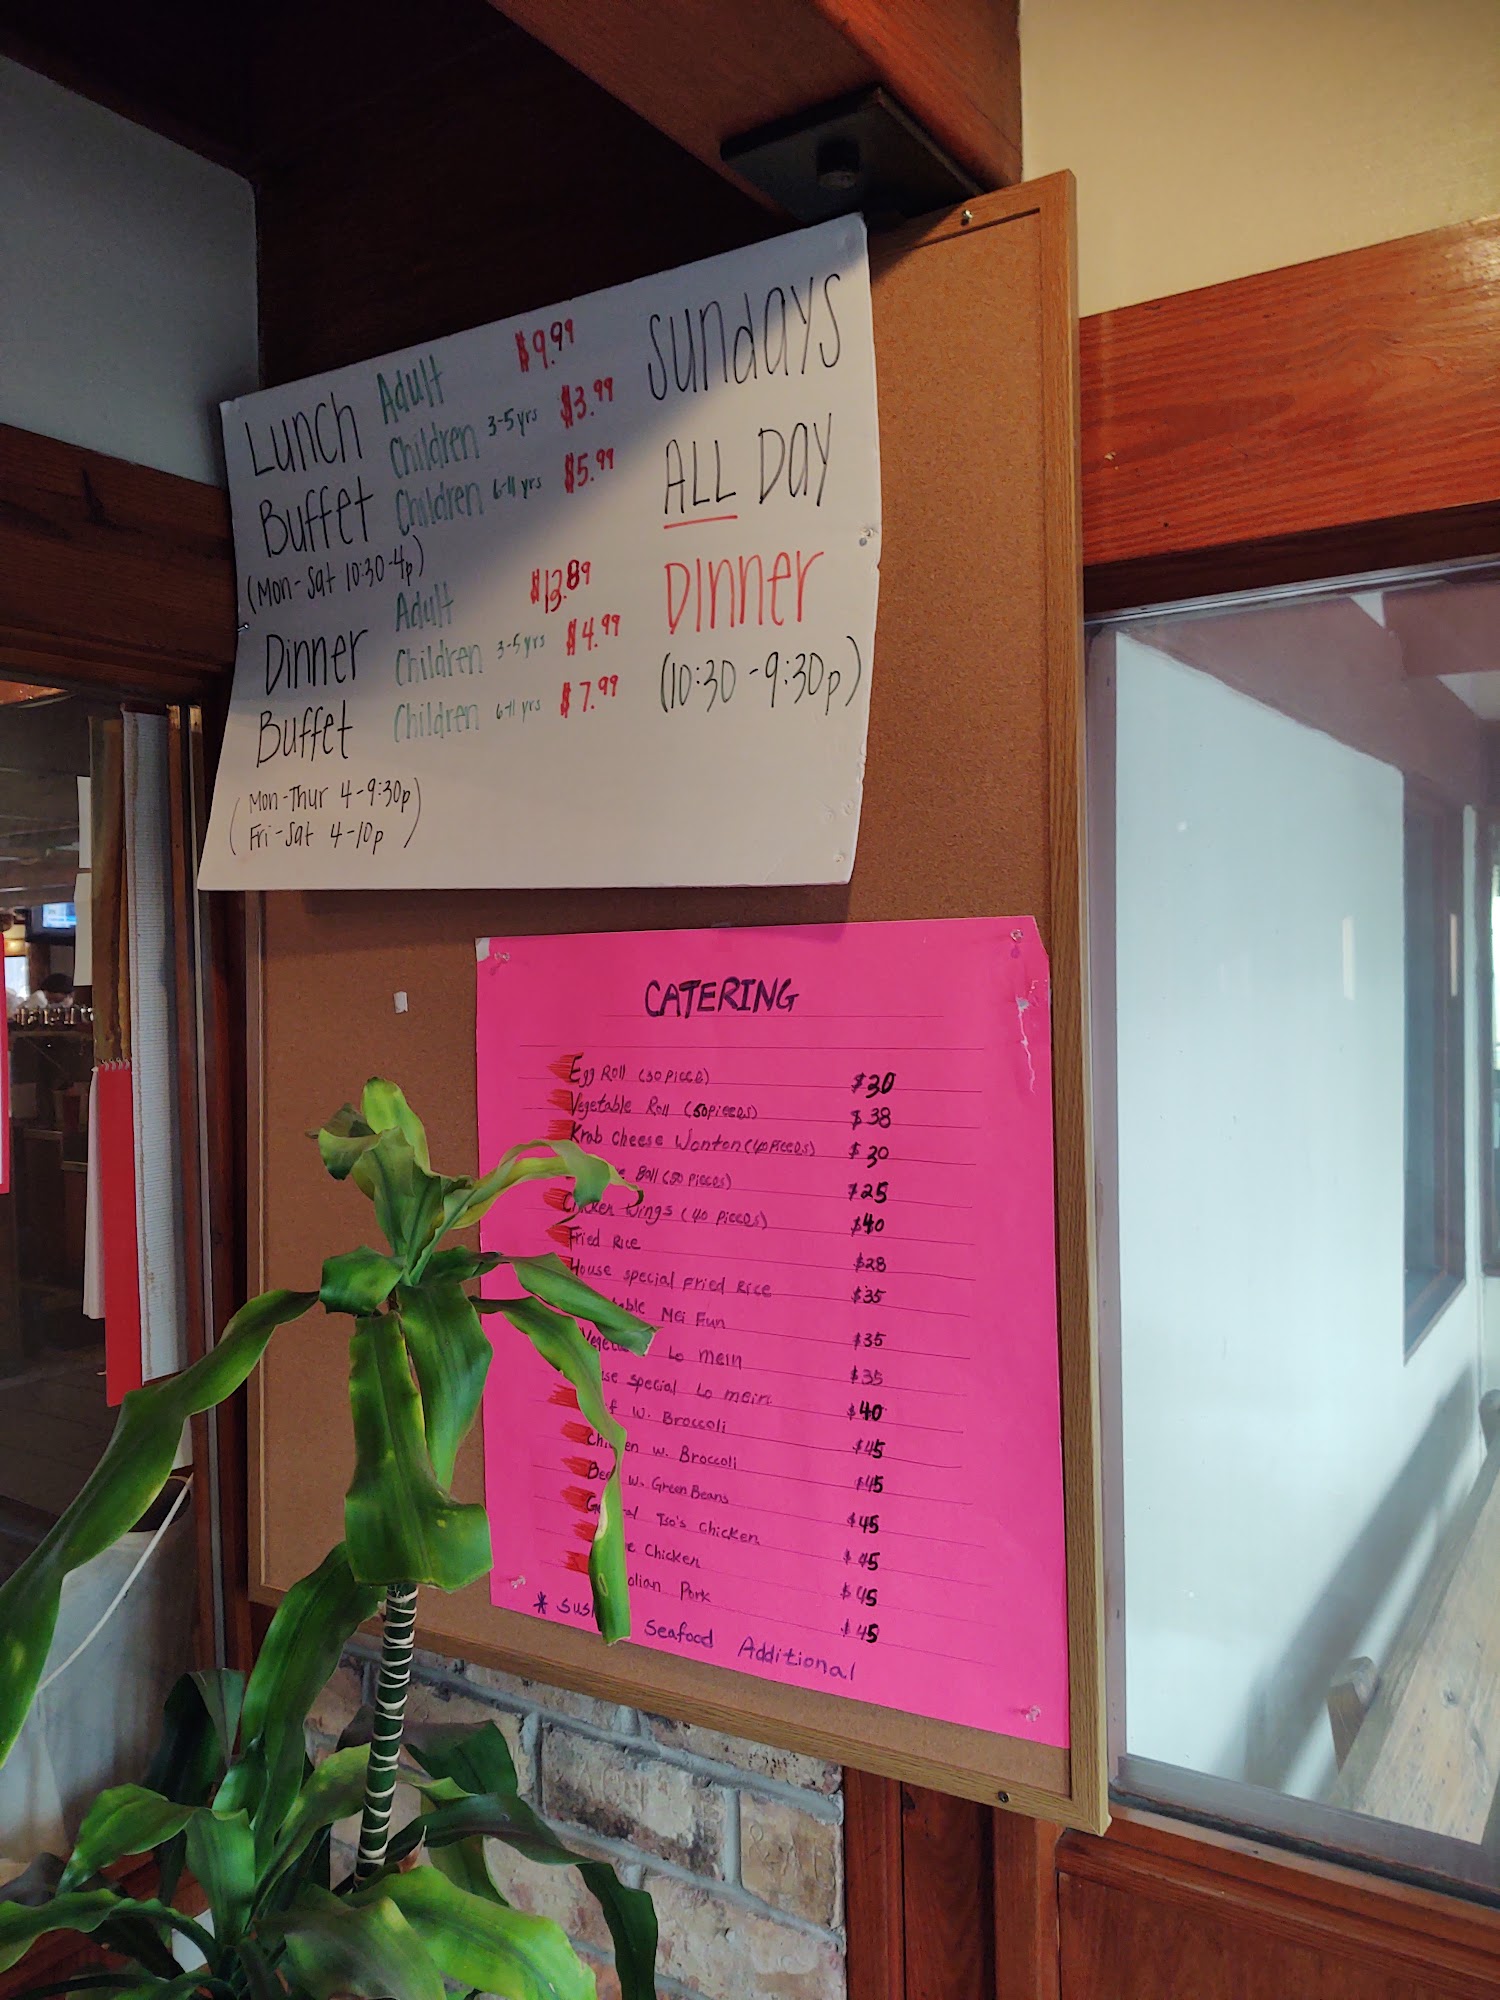 Lunch Buffet
(Mon-Sat 10:30-4p)
Adult $9.99
Children 3-5yrs $3.99
Children 6-11 yrs $5.99
Dinner Buffet
Adult $13.89
Children 3-5yrs $4.99
Children 6-11 yrs $7.99
(Mon-Thur 4-9:30p
Fri-Sat 4-10p)
SUNDAYS
ALL DAY
DINNER
(10:30-9:30p)
CATERING
Egg Roll (50 PIECE) $30
Vegetable Roll (50 pieces) $38
Krab Cheese Wonton (40 PIECES) $30
Ball (50 PIECES) $25
Chicken Wings (40 PIECES) $40
Fried Rice $28
House special Fried Rice $35
Mei Fun $35
Lo mein $35
special Lo mein $40
W. Broccoli $45
Chicken w. Broccoli $45
Beef w. Green Beans $45
General Tso's Chicken $45
Chicken $45
Pork $45
* Seafood Additional